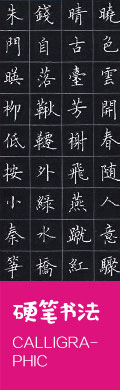 曉色雲開春随人意驟
晴古臺芳榭飛燕蹴紅
錢自落鞦韆外綠水橋
朱門暎柳低按小秦筝
硬笔书法
CALLIGRA-
PHIC